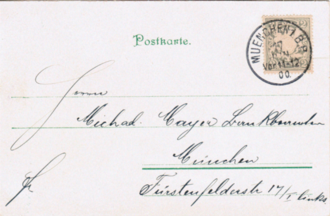 Postkarte.
MUENCHEN 1 B.P.
Vor 11-12
00.
Herrn
Michael Mayer Bankbeamten
München
Fürstenfelderstr 17/I links
Hr